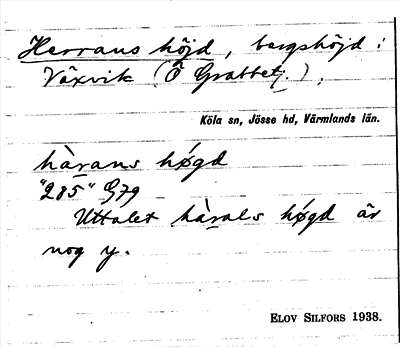 Herrans höjd, bergshöjd i
Växvik (Ö Grabbetj.).
Köla sn, Jösse hd, Värmlands län.
hàrans høgd
"285" G79
Uttalet hàrals høgd är
nog y.
ELOV SILFORS 1938.